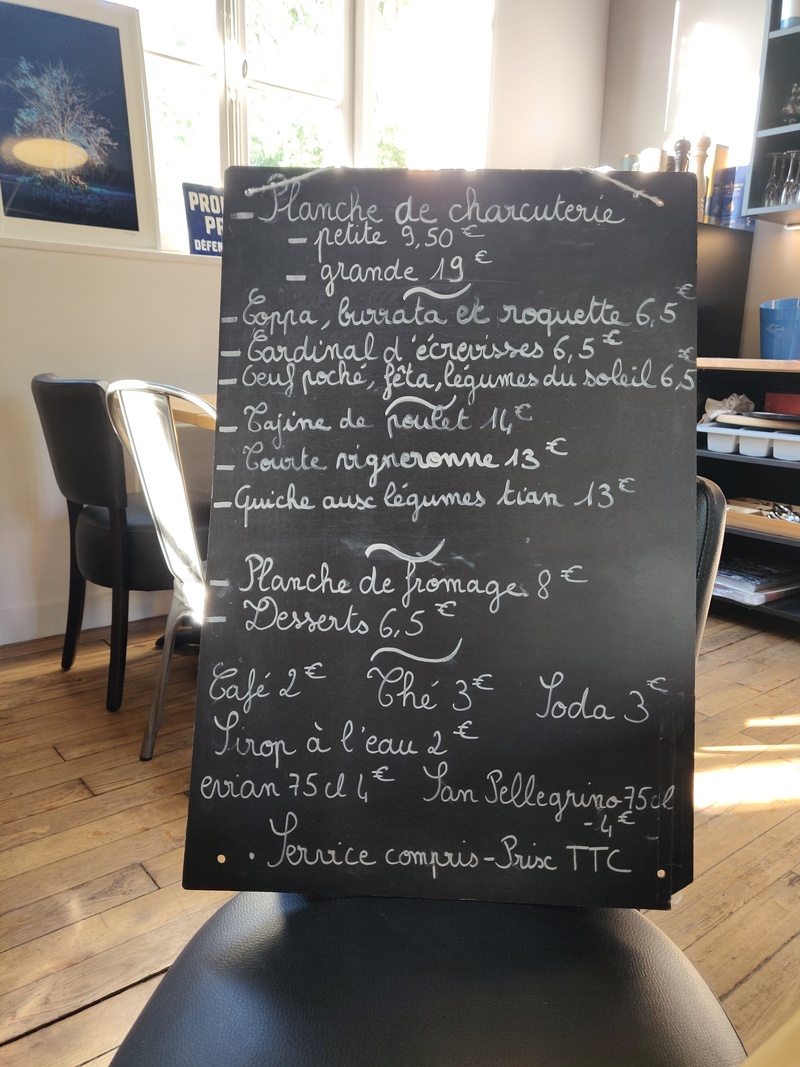 PRO
PR
DÉFEN
- Planche de charcuterie
- petite 9,50 €
- grande 19 €
- Coppa, burrata et roquette 6,5 €
- Cardinal d'écrevisses 6,5 €
- Oeuf poché, fêta, légumes du soleil 6,5 €
- Tajine de poulet 14 €
- Tourte vigneronne 13 €
- Quiche aux légumes tian 13 €
- Planche de fromages 8 €
- Desserts 6,5 €
Café 2 € Thé 3 € Soda 3 €
Sirop à l'eau 2 €
evian 75 cl 4 € San Pellegrino 75cl
- 4 €
• Service compris - Prix TTC